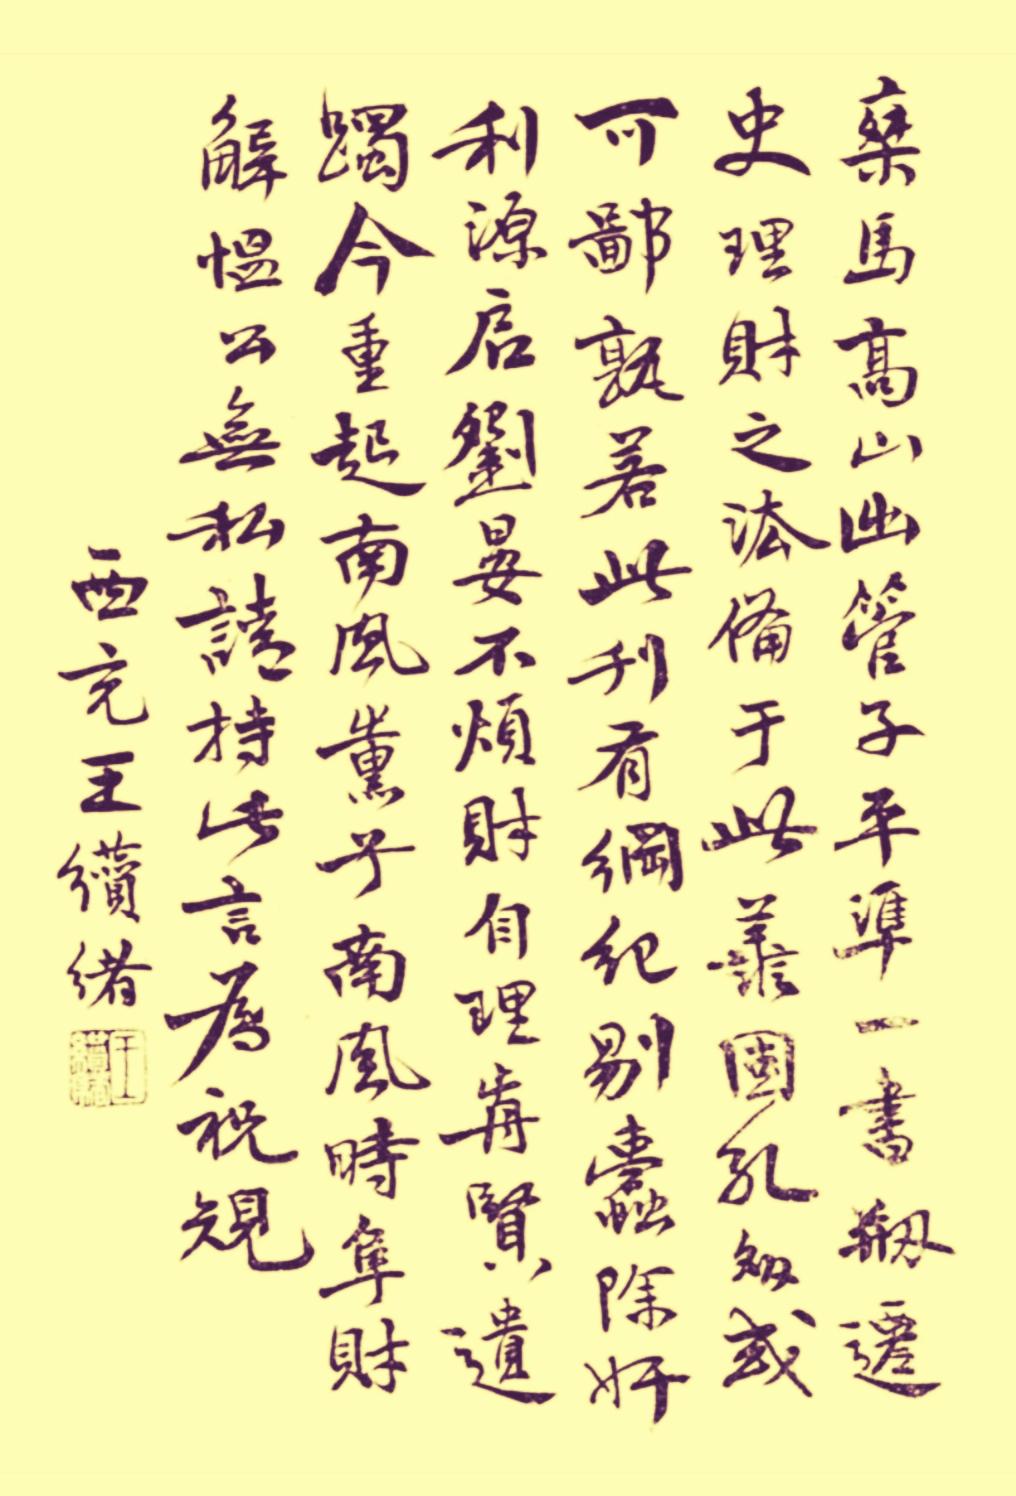 椉馬高山出管子平準一書剙遷
史理財之法備于此叢國孔或
可鄙孰若此刊有綱紀剔蠹除奸
利源启劉晏不煩財自理前賢遺
躅今重起南風薰兮南風時阜財
解愠公無私請持此言為祝規
西充王纘緒
王纘緒